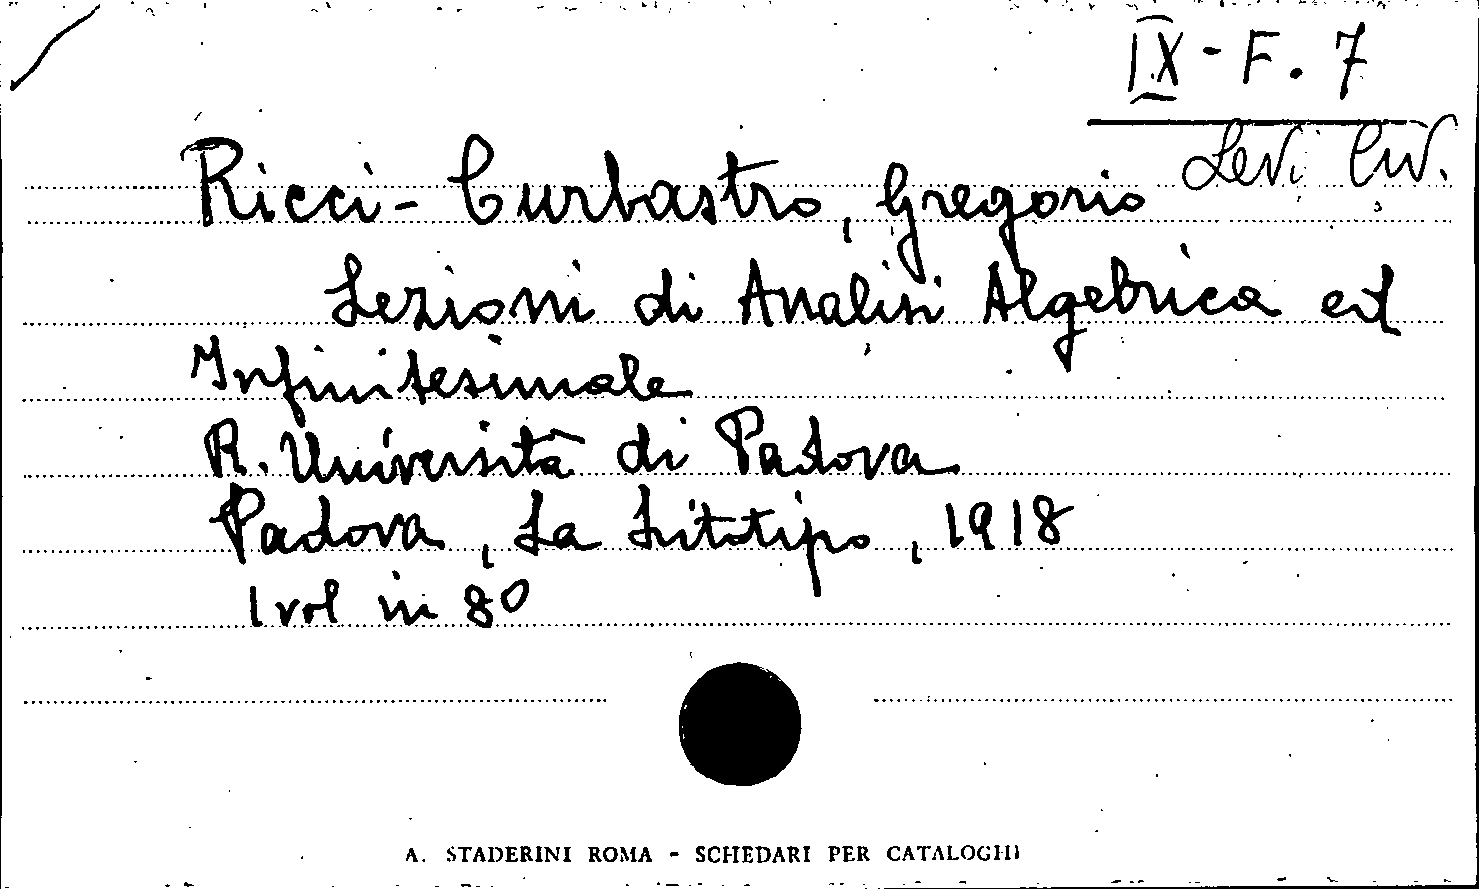 IX - F. 7
Levi Civ.
Ricci-Curbastro, Gregorio
Lezioni di Analisi Algebrica ed
Infinitesimale
R. Università di Padova
Padova, La Litotipo, 1918
1 vol in 8º
A. STADERINI ROMA - SCHEDARI PER CATALOGHI